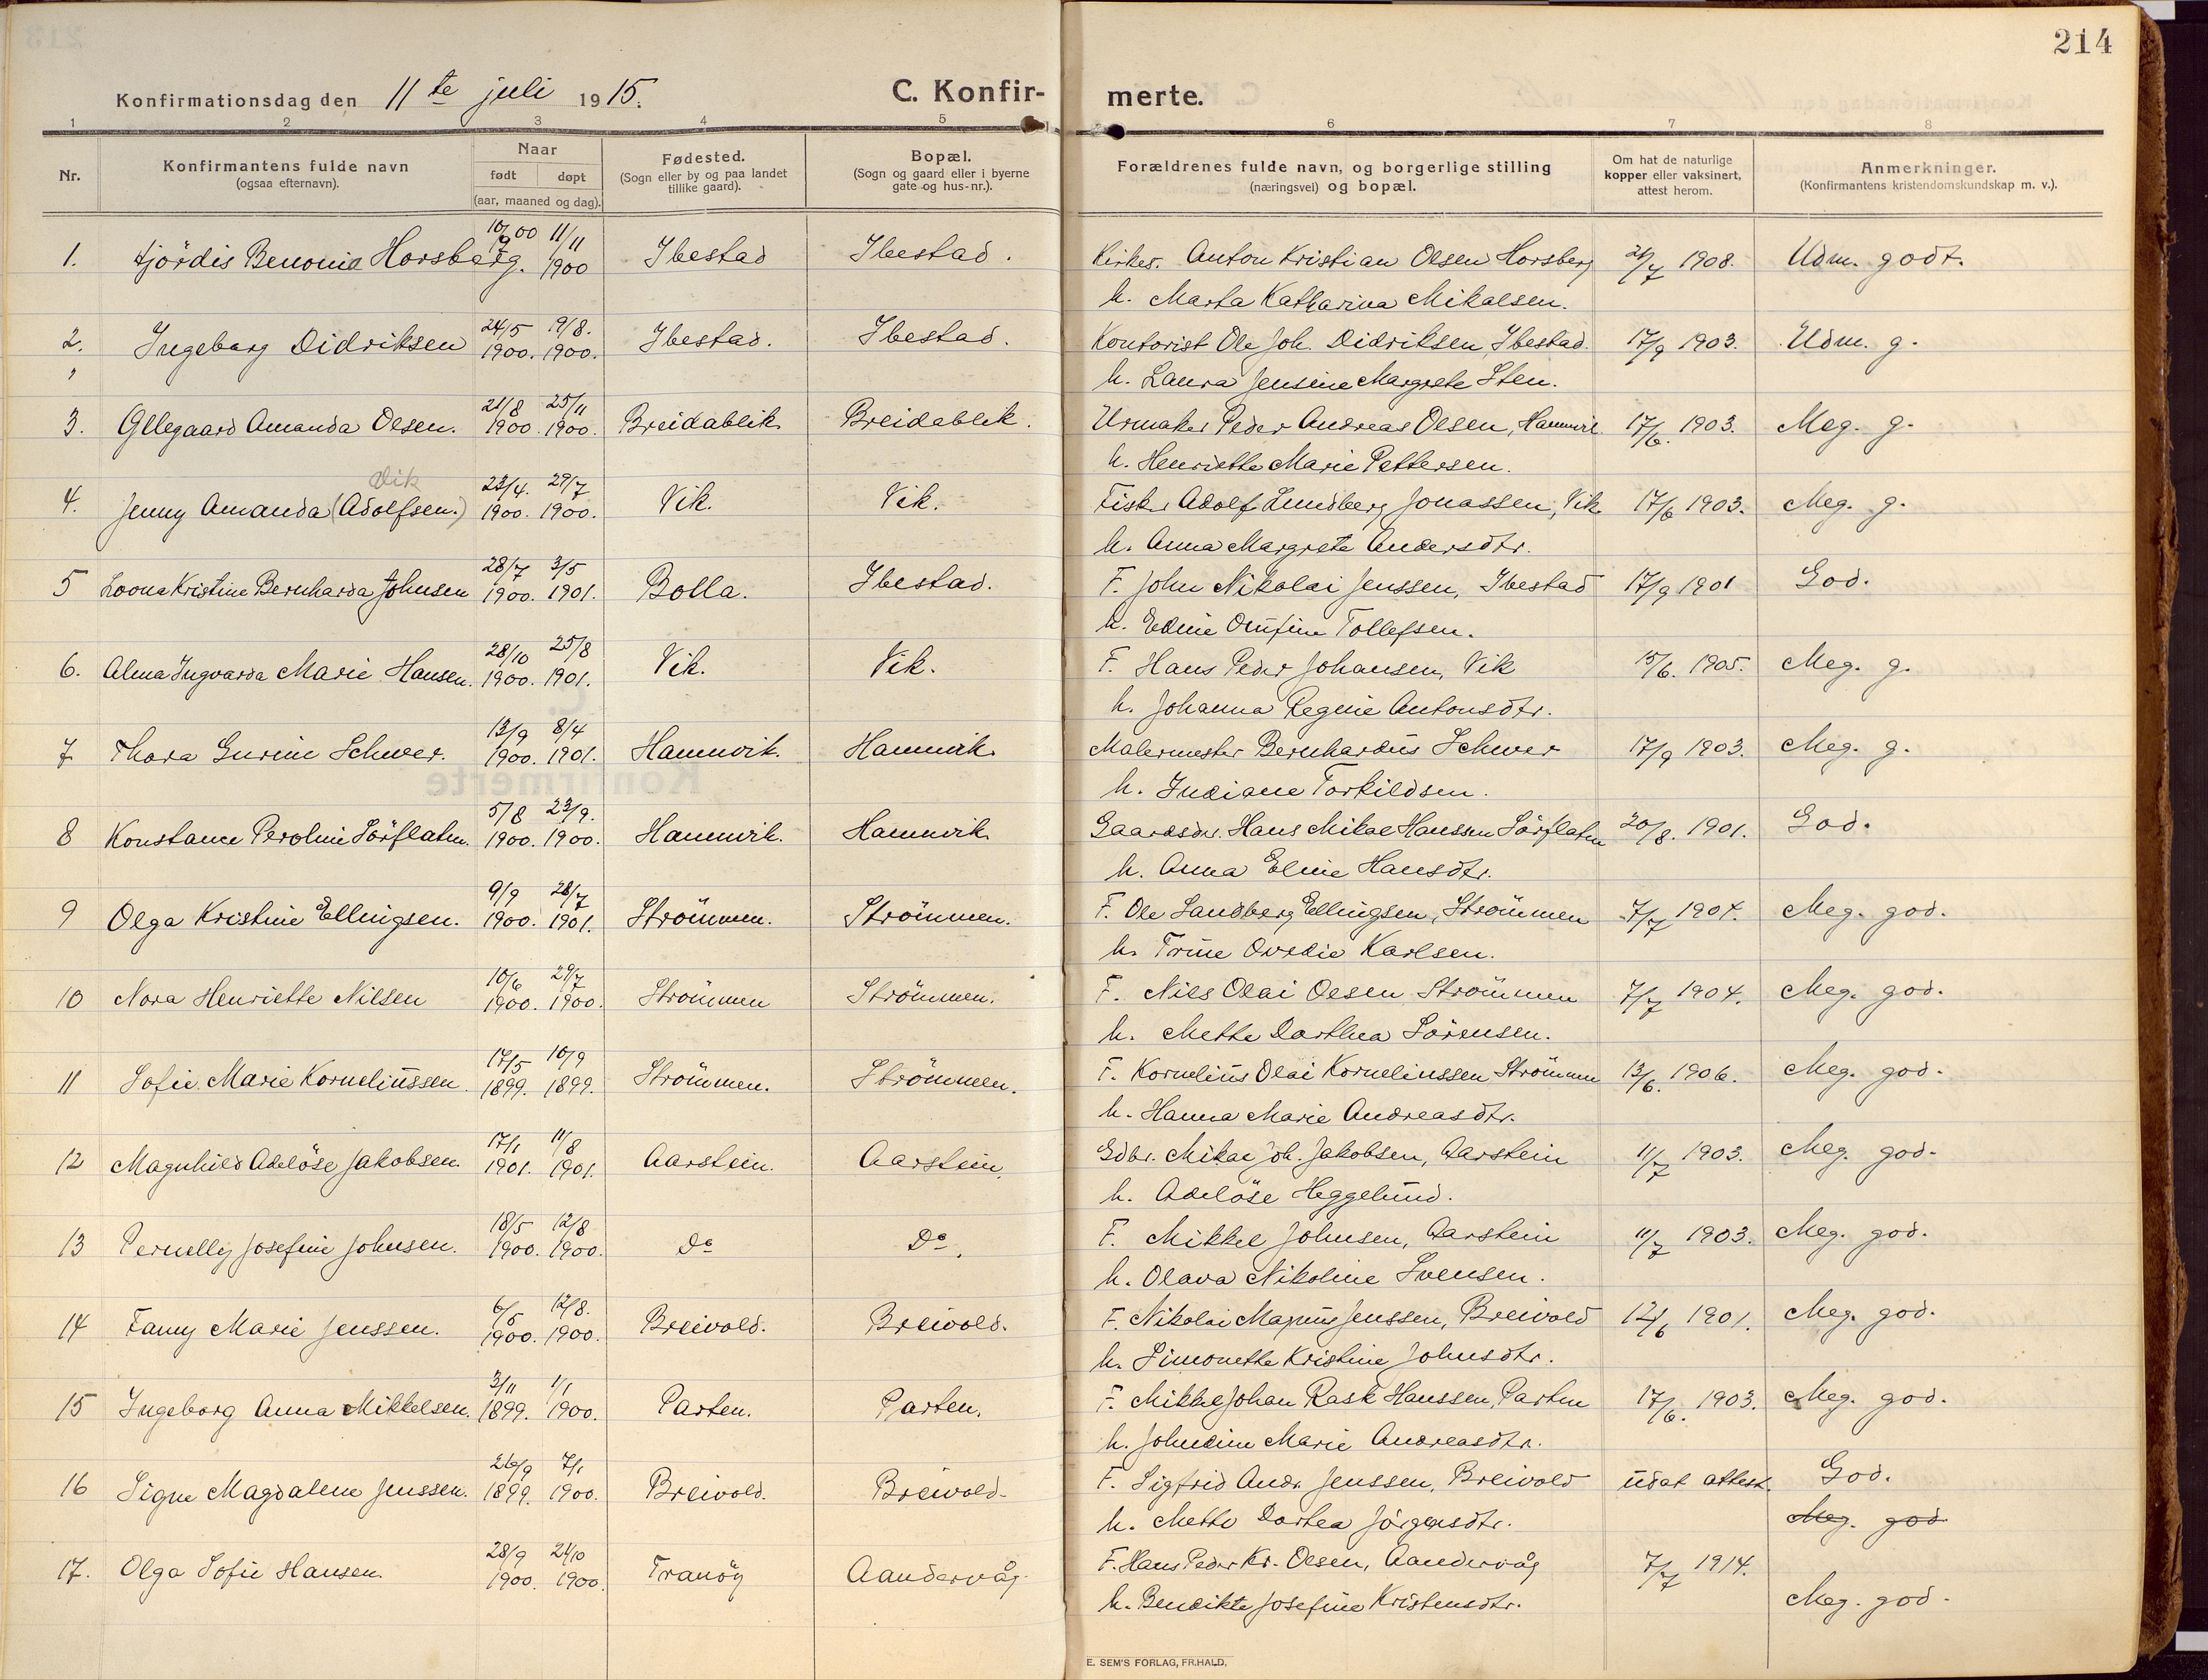 214
Konfirmationsdag den 11te juli 1915.
C. Konfirmerte.
1 2 3 4 5 6 7 8
Nr.
Konfirmantens fulde navn
(ogsaa efternavn).
Naar
født døpt
(aar, maaned og dag).
Fødested.
(Sogn eller by og paa landet
tillike gaard).
Bopæl.
(Sogn og gaard eller i byerne
gate og hus-nr.).
Forældrenes fulde navn, og borgerlige stilling
(næringsvei) og bopæl.
Om hat de naturlige
kopper eller vaksinert,
attest herom.
Anmerkninger.
(Konfirmantens kristendomskundskap m. v.).
1. Hjördis Benonie Horsberg. 10/9 00 11/11 1900 Ibestad Ibestad. Kirkes. Anton Kristian Olsen Horsberg 21/7 1908. Udm. godt.
h. Marta Katharina Mikalsen.
2. Ingeborg Didriksen 24/5 1900. 19/8. 1900. Ibestad. Ibestad. Kontorist Ole Joh. Didriksen, Ibestad. 17/9 1903. Udm. g.
h. Laura Jensine Margrete Sten.
3. Ellegaard Amanda Olsen. 21/8 1900. 25/11 1900. Breidablik Breidablik. Urmaker Peder Andreas Olsen, Hamnvik. 17/6. 1903. Meg. g.
h. Henriette Marie Pettersen.
Vik
4. Jenny Amanda (Adolfsen.) 23/4. 1900. 29/7 1900. Vik. Vik. Fisker Adolf Lundberg Jonassen, Vik 17/6 1903. Meg. g.
h. Anna Margrete Andersdtr.
5 Loona Kristine Bernharda Johnsen 28/7 1900. 3/5 1901. Bolla. Ibestad. F. John Nikolai Jenssen, Ibestad 17/9 1901 God.
h. Edine Onfine Tollefsen.
6. Alma Ingvarda Marie Hansen. 28/10 1900. 25/8 1901. Vik. Vik. F. Hans Peder Johansen, Vik 15/6. 1905. Meg. g.
h. Johanna Regine Antonsdtr.
7 Thora Gurine Schwer. 13/9 1900. 8/4 1901. Hamnvik. Hamnvik. Malermester Bernhardus Schwer 17/9 1903. Meg. g.
h. Indiane Torkildsen.
8 Konstance Peroline Sörflaten. 5/8 1900. 23/9. 1900. Hamnvik. Hamnvik Gaardsbr. Hans Mikal Hanssen Sörflaten 20/8. 1901. God.
h. Anna Eline Hansdtr.
9 Olga Kristine Ellingsen. 9/9 1900. 28/7 1901. Strömmen. Strömmen. F. Ole Sandberg Ellingsen, Strömmen 7/7 1904. Meg. god.
h. Trine Ovedie Karlsen.
10 Nora Henriette Nilsen 10/6 1900. 29/7 1900. Strömmen Strömmen. F. Nils Olai Olsen Strömmen 7/7 1904. Meg. god.
h. Mette Dorthea Sörensen.
11 Sofie Marie Korneliussen. 17/5 1899. 10/9 1899. Strömmen. Strömmen. F. Kornelius Olai Korneliussen Strömmen 13/6. 1906. Meg. god.
h. Hanna Marie Andreasdtr.
12 Magnhild Adelöse Jakobsen. 17/1 1901. 11/8 1901. Aarstein. Aarstein. Gdbr. Mikal Joh. Jakobsen, Aarstein 11/7 1903. Meg. god.
h. Adelöse Heggelund.
13 Pernelly Josefine Johnsen. 18/5 1900. 12/8 1900. Do Do. F. Mikkel Johnsen, Aarstein 11/7 1903. Meg. god.
h. Olava Nikoline Svensen.
14 Fanny Marie Jenssen. 6/5 1900. 12/8. 1900. Breivold. Breivold. F. Nikolai Magnus Jenssen, Breivold 12/6 1901. Meg. god.
h. Simonette Kristine Johnsdtr.
15 Ingeborg Anna Mikkelsen. 3/11 1899. 1/1 1900. Parten. Parten. F. Mikkel Johan Rask Hanssen, Parten 17/6. 1903. Meg. god.
h. Johndine Marie Andreasdtr.
16 Signe Magdalene Jenssen. 26/9 1899. 7/1 1900. Breivold. Breivold. F. Sigfrid Andr. Jenssen, Breivold udat attest. God.
h. Mette Dortea Jörgensdtr. Meg. god
17. Olga Sofie Hansen. 28/9 1900. 24/10 1900. Tranöy Aandervåg. F. Hans Peder Kr. Olsen, Aandervåg 7/7 1914.
h. Bendikte Josefine Kristensdtr. Meg. god.
E. SEM'S FORLAG, FR.HALD.